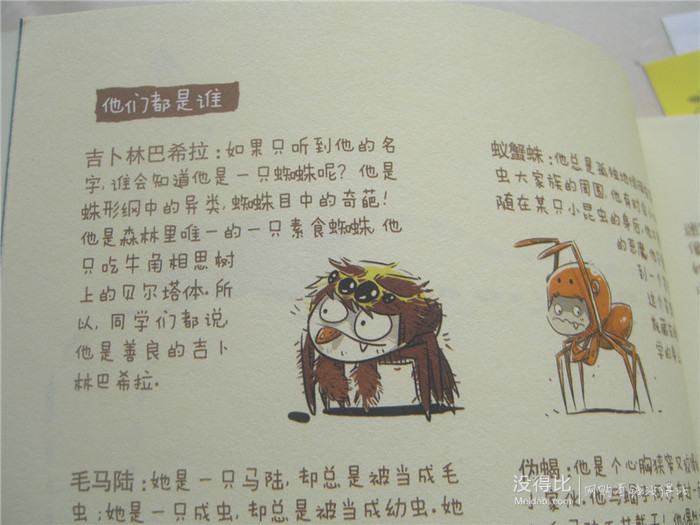 他们都是谁
吉卜林巴希拉:如果只听到他的名
字,谁会知道他是一只蜘蛛呢?他是
蛛形纲中的异类,蜘蛛目中的奇葩!
他是森林里唯一的一只素食蜘蛛,他
只吃牛角相思树
上的贝尔塔体.所
以,同学们都说
他是善良的吉卜
林巴希拉.
毛马陆:她是一只马陆,却总是被当成毛
虫;她是一只成虫,却总是被当成幼虫.她
蚁蟹蛛:他总是孤独地
虫大家族的周围.他有时
随在某只小昆虫的身后,他
的恶魔
到一个
这个
学的身
伪蝎:他是个心胸狭窄又
没得比
Meidebi.com